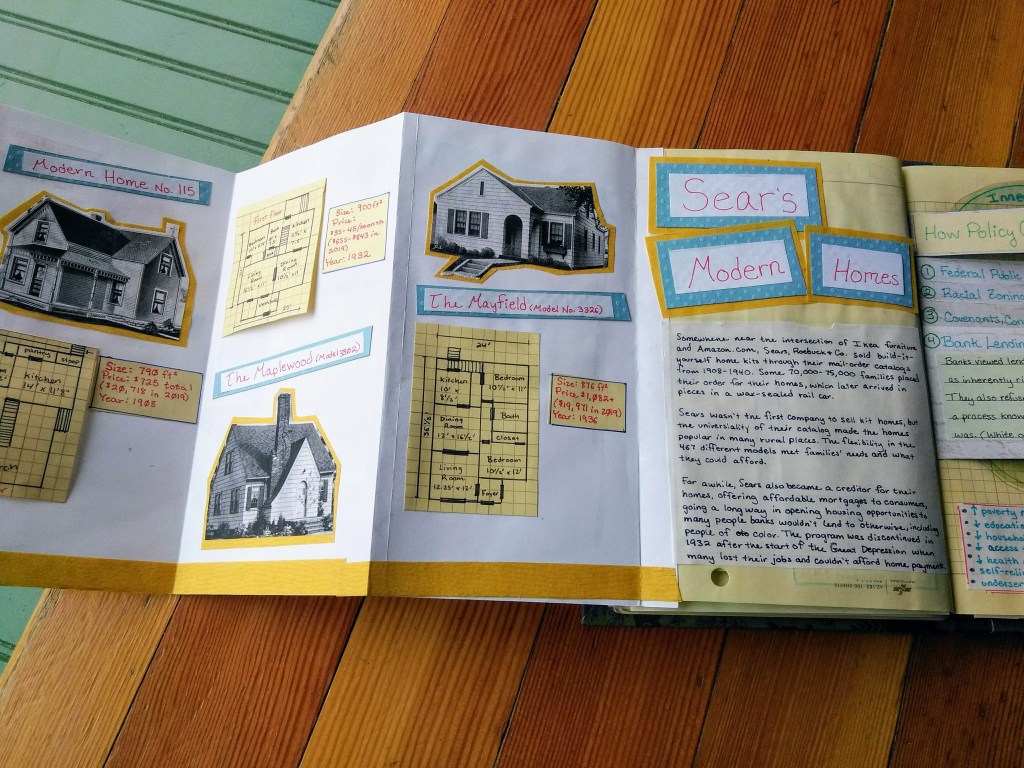 Modern Home No. 115
Pantry
Stoop
Kitchen
14' x 11'8"
Size: 790 ft²
Price: $725 total
($20,718 in 2019)
Year: 1908
First Floor
Kitchen
Dining
Room
Living
Size: 900 ft²
Price:
$35-45/month
($655-$843 in
2019)
Year: 1932
The Maplewood (Model 3302)
The Mayfield (Model No. 3326)
24'
Kitchen
10' x
8½'
Bedroom
10½' x 11'
Bath
Dining
Room
12' x 16½'
Closet
Bedroom
10½' x 12'
Living
Room
12.25' x 12'
Foyer
36½'
Size: 876 ft²
Price $1,082+
($19,971 in 2019)
Year: 1936
Sear's
Modern
Homes
Somewhere near the intersection of Ikea furniture
and Amazon.com, Sears, Roebuck & Co. sold build-it-
yourself home kits through their mail-order catalogs
from 1908-1940. Some 70,000-75,000 families placed
their order for their homes, which later arrived in
pieces in a wax-sealed rail car.
Sears wasn't the first company to sell kit homes, but
the universiality of their catalog made the homes
popular in many rural places. The flexibility in the
467 different models met families' needs and what
they could afford.
For awhile, Sears also became a creditor for their
homes, offering affordable mortgages to consumers,
going a long way in opening housing opportunities to
many people banks wouldn't lend to otherwise, including
people of color. The program was discontinued in
1932 after the start of the Great Depression when
many lost their jobs and couldn't afford home payments.
Inne
How Policy
① Federal Public
② Racial Zoning
③ Covenants, Con
④ Bank Lendin
Banks viewed len
as inherently ri
They also refuse
a process know
was. (White o
↑ poverty
↓ educatio
↓ househo
↓ access
↓ health
self-reli
underser